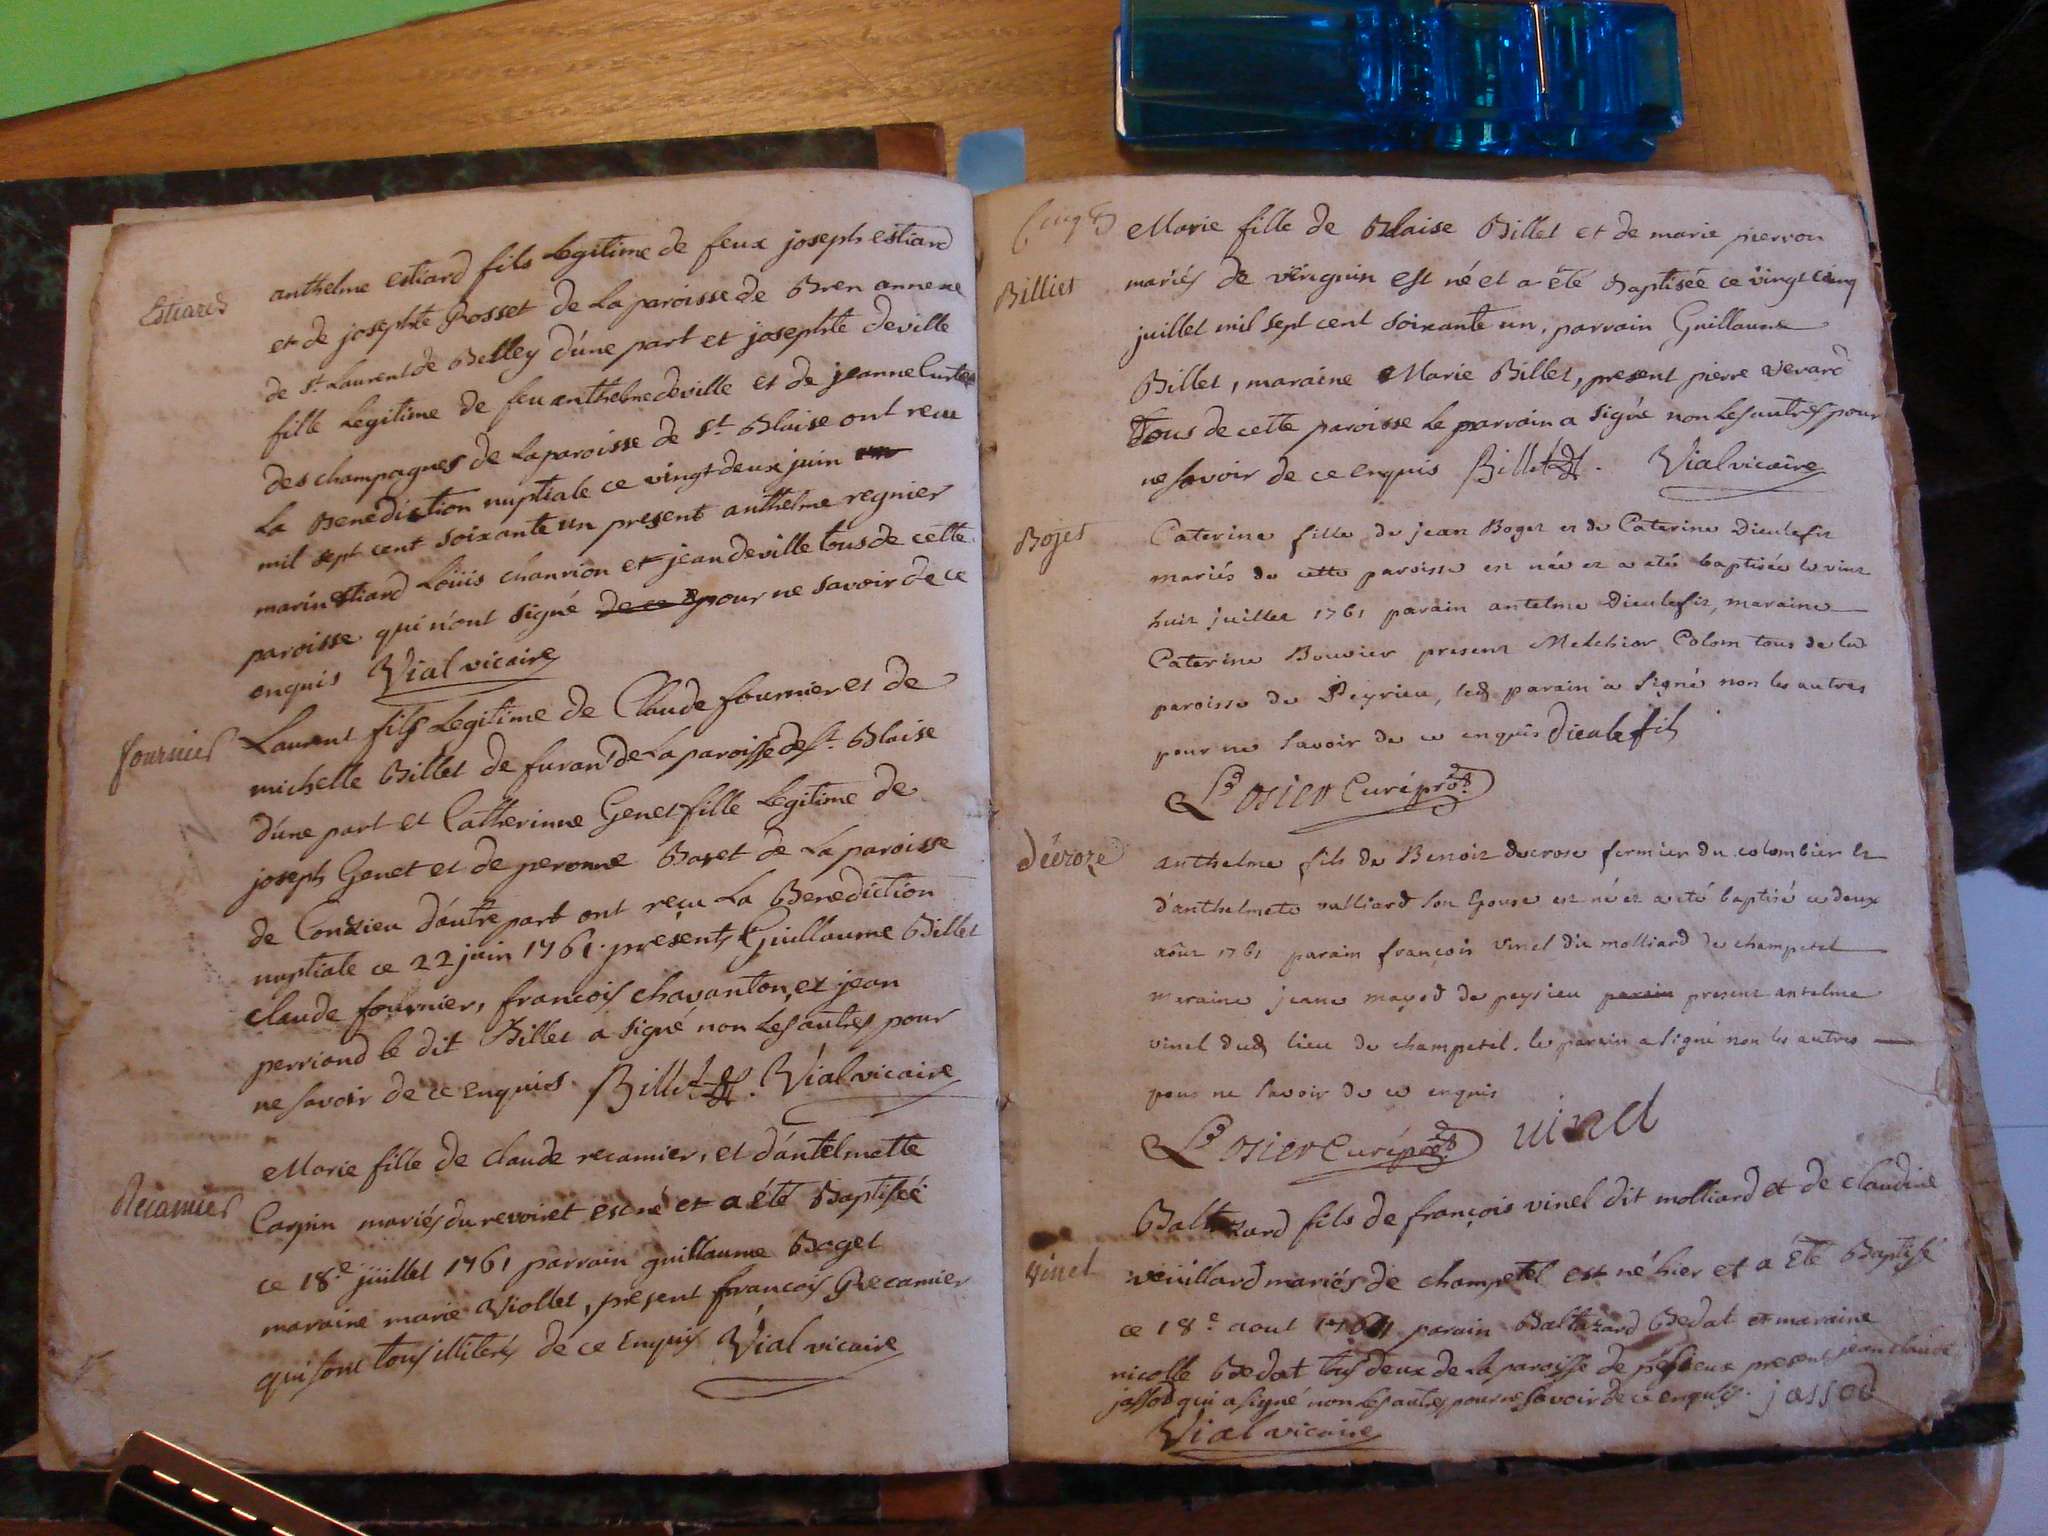 Estiard
anthelme estiard fils Legitime de feux joseph estiard
et de josephte Gosset de La paroisse de Bren annexe
de St. Laurent de Belley d'une part et josephte deville
fille Legitime de feu anthelme deville et de jeanne Curtet
des champagnes de La paroisse de St. Blaise ont reçu
La Benediction nuptiale ce vingt deux juin
mil sept cent soixante un present anthelme regnier
marin estiard Loüis chanrion et jean deville tous de cette
paroisse qui n'ont signé de ce pour ne savoir de ce
enquis Vial vicaire
fournier
Laurent fils Legitime de Claude fournier et de
michelle Billet de furan de La paroisse de St. Blaise
d'une part et Catherinne Genet fille Legitime de
joseph Genet et de peronne Baret de La paroisse
de Conzieu d'autre part ont reçu La Benediction
nuptiale ce 22 juin 1761. presents Guillaume Billet
claude fournier, francois chavanton, et jean
perriond le dit Billet a signé non Les autres pour
ne savoir de ce enquis. Billet. Vial vicaire
Recamier
Marie fille de claude recamier, et d'antelmette
Carpin mariés du revoiret est né et a été Baptisée
ce 18.e juillet 1761 parrain guillaume Boget
maraine marie Viollet, present francois Recamier
qui sont tous illiterés de ce Enquis Vial vicaire
Billiet
Marie fille de Blaise Billet et de marie pierron
mariés de vinguin est né et a été Baptisée ce vingt cinq
juillet mil sept cent soixante un, parrain Guillaume
Billet, maraine Marie Billet, present pierre Verard
Tous de cette paroisse Le parrain a signé non Les autres pour
ne savoir de ce enquis Billet. Vial vicaire
Bojet
Caterine fille de jean Boget et de Caterine Dieulefit
mariés de cette paroisse est née et a été baptisée le vint
huit juillet 1761 parain antelme Dieulefit, maraine
Caterine Bouvier present Melchior Colom tous de lad
paroisse de Peyrieu, led parain a signé non les autres
pour ne savoir de ce enquis Dieulefils
Rosier Curé
Décroze
anthelme fils de Benoit decrose fermier du colombier et
d'anthelmete valliard son Epouse est né et a été baptisé ce deux
août 1761 parain françois vinel dit molliard de champetel
maraine jeane mayod de peysieu parain present antelme
vinel dud lieu de champetel. le parain a signé non les autres
pour ne savoir de ce enquis
Rosier Curé vinel
Vinel
Baltazard fils de françois vinel dit molliard et de claudine
veuillard mariés de champetel est né hier et a été Baptisé
ce 18.e aout 1761 parain Baltazard Bedat et maraine
nicolle Bedat tous deux de La paroisse de present jean claude
jassod qui a signé non Les autres pour ne savoir de ce enquis. jassod
Vial vicaire